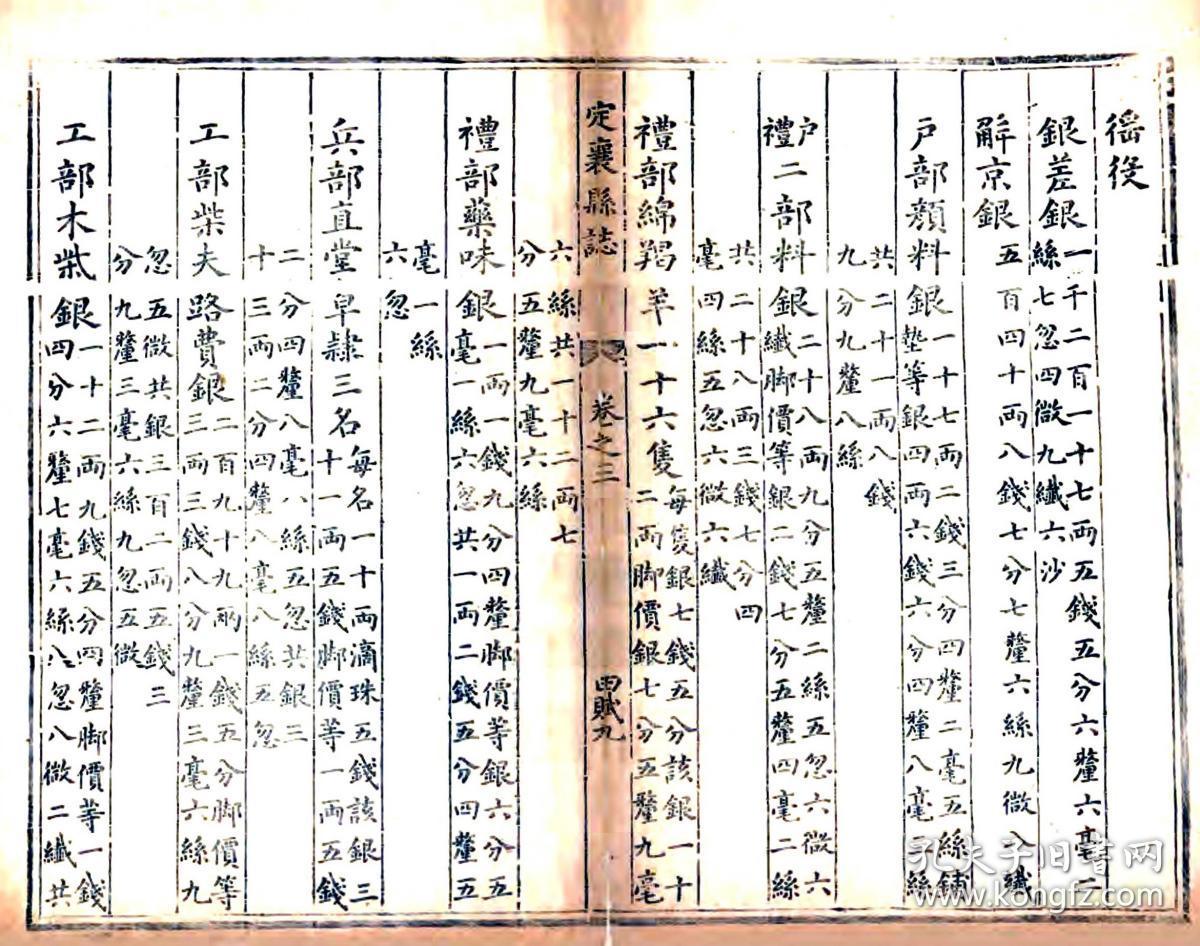 徭役
銀差銀一千二百一十七両五錢五分六釐六毫二
絲七忽四微九纖六沙
解京銀五百四十両八錢七分七釐六絲九微八纖
戶部顏料銀一十七両二錢三分四釐二毫五絲鋪
墊等銀四両六錢六分四釐八毫三絲
共二十一両八錢
九分九釐八絲
戶禮二部料銀二十八両九分五釐二絲五忽六微六
纖脚價等銀二錢七分五釐四毫二絲
共二十八両三錢七分四
毫四絲五忽六微六纖
禮部綿羯羊一十六隻每隻銀七錢五分該銀一十
二両脚價銀七分五釐九毫
六絲共一十二両七
分五釐九毫六絲
定襄縣誌
卷之三
田賦九
禮部藥味銀一両一錢九分四釐脚價等銀六分五
毫一絲六忽共一両二錢五分四釐五
毫一絲
六忽
兵部直堂皁隸三名每名一十両滴珠五錢該銀三
十一両五錢脚價等一両五錢
二分四釐八毫八絲五忽共銀三
十三両二分四釐八毫八絲五忽
工部柴夫路費銀二百九十九両一錢五分脚價等
三両三錢八分九釐三毫六絲九
忽五微共銀三百二両五錢三
分九釐三毫六絲九忽五微
工部木柴銀一十二両九錢五分四釐脚價等一錢
四分六釐七毫六絲八忽八微二纖共
孔夫子旧书网
www.kongfz.com